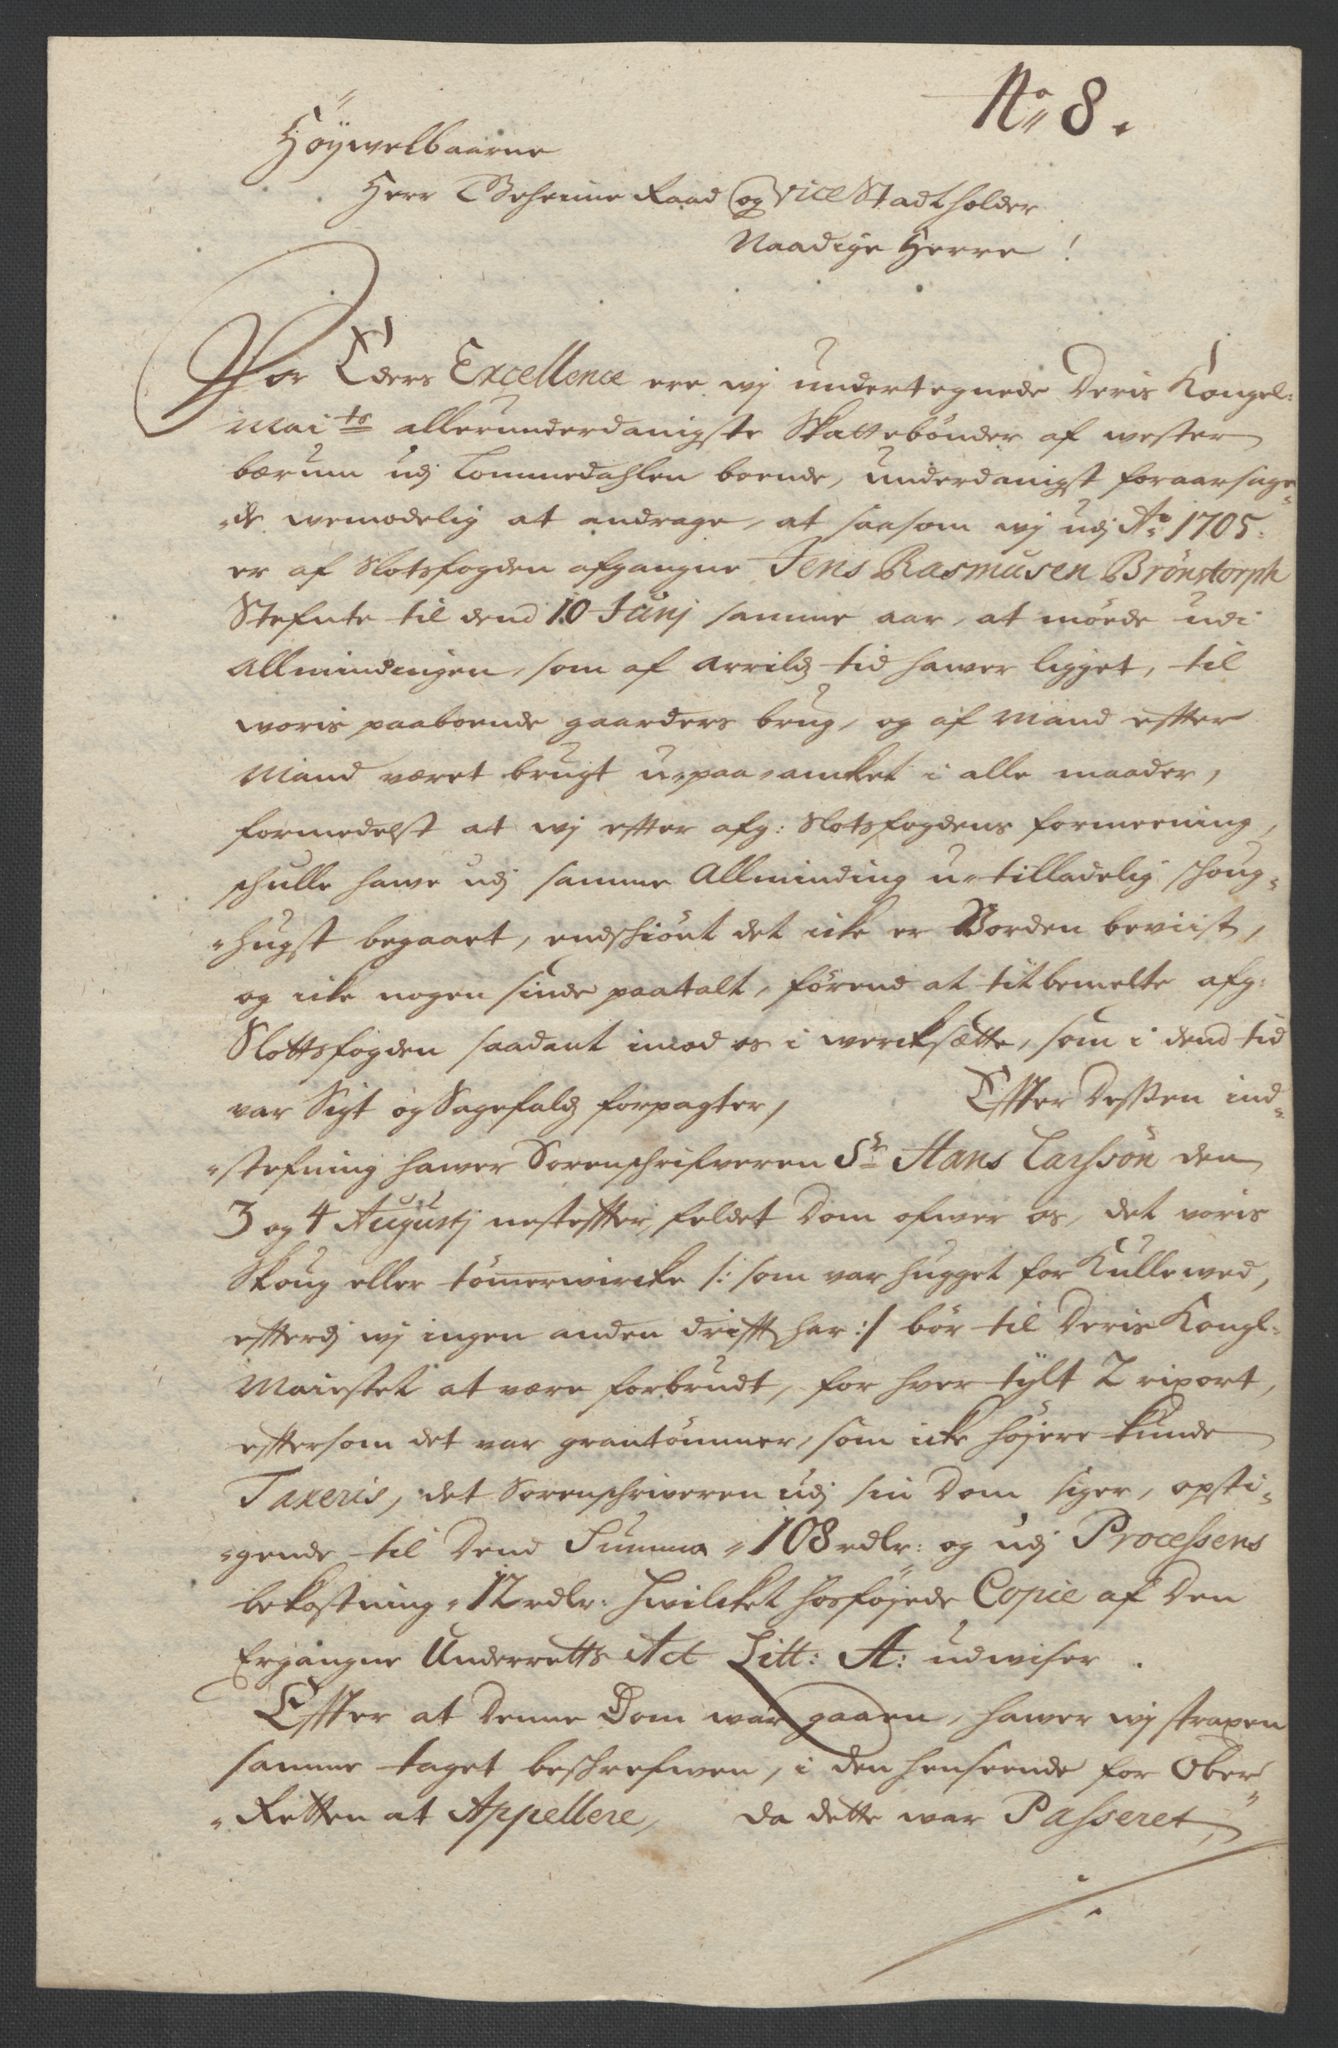 No 8.
Höÿwelbaarne
Herr Geheime Raad og Vice Stadtholder
Naadige Herre!
For Eders Excellence ere wj undertegnede Deris Kongel:
Maits allerunderdanigste Skattebönder af wester
bærum udj Lommedahlen boende, underdanigst foraarsage-
-de wemodelig at andrage, at saasom wj udj Ao 1705.
er af Slotsfogden afgangne Jens Rasmusen Brönstorph
Stefnte til dend 10 Junj samme aar, at möede udi
Allmindingen, som af Arrildz tid hawer ligget, til
woris paaboende gaarders brug, og af Mand effter
Mand været brugt u-paa-ancket i alle maader,
formedelst at wj effter afg: Slotsfogdens formeening,
schulle hawe udj samme Allminding u-tilladelig schoug-
-hugst begaaet, endschiönt det icke er Vorden beviist,
og icke nogen sinde paatalt, förend at titbemelte afg:
Slottsfogden saadant imod os i wercksætte, som i dend tid
var Sigt og Sagefaldz forpagter, Effter Dessen ind-
-stefning hawer Sorenschrifveren Sr Hans Larssön den
3 og 4 Augustj nesteffter, feldet Dom ofwer os, det voris
Skoug eller tömerwircke /: som var hugget for Kullewed,
efterdj wj ingen anden drifft har :/ bör til Deris Kongl-
Maiestet at være forbrudt, for hver tÿlt 2 rixort,
efftersom det var grantömmer, som icke höjere kunde
Taxeris, det Sorenschriveren udj sin Dom siger, opsti-
-gende til Dend Summa -108 rdlr: og udj Processens
bekostning -12 rdlr: Hwilcket hosföjede Copie af Den
Ergangne Underretts Act Litt: A: udwiser.
Effter at Denne Dom war gaaen, hawer wj straxen
samme taget beschrefwen, i den henseende for Ober
-Retten at Appellere, da dette war Passeret,